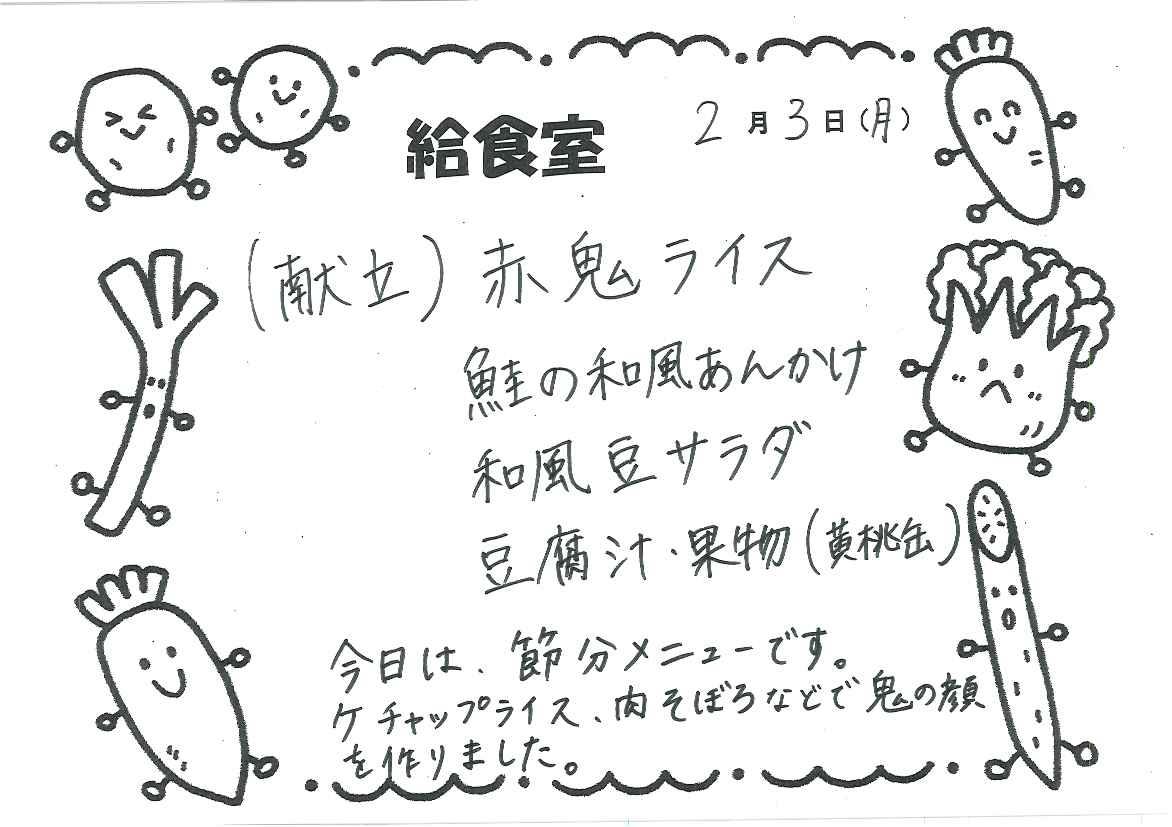 給食室
2月3日(月)
(献立)赤鬼ライス
鮭の和風あんかけ
和風豆サラダ
豆腐汁・果物(黄桃缶)
今日は、節分メニューです。
ケチャップライス、肉そぼろなどで鬼の顔
を作りました。